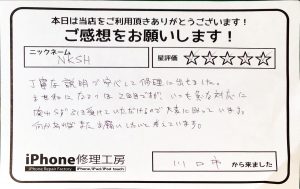 本日は当店をご利用頂きありがとうございます!
ご感想をお願いします!
ニックネーム
NKSH
星評価 ☆☆☆☆☆
丁寧な説明で安心して修理に出せました。
2回目ですが、いつも
受けていただけるので大変に助っています。
何かあれば またお願いしたいと考えています。
iPhone修理工房
iPhone Repair Factory iPhone/iPad/iPod touch
川口市
から来ました